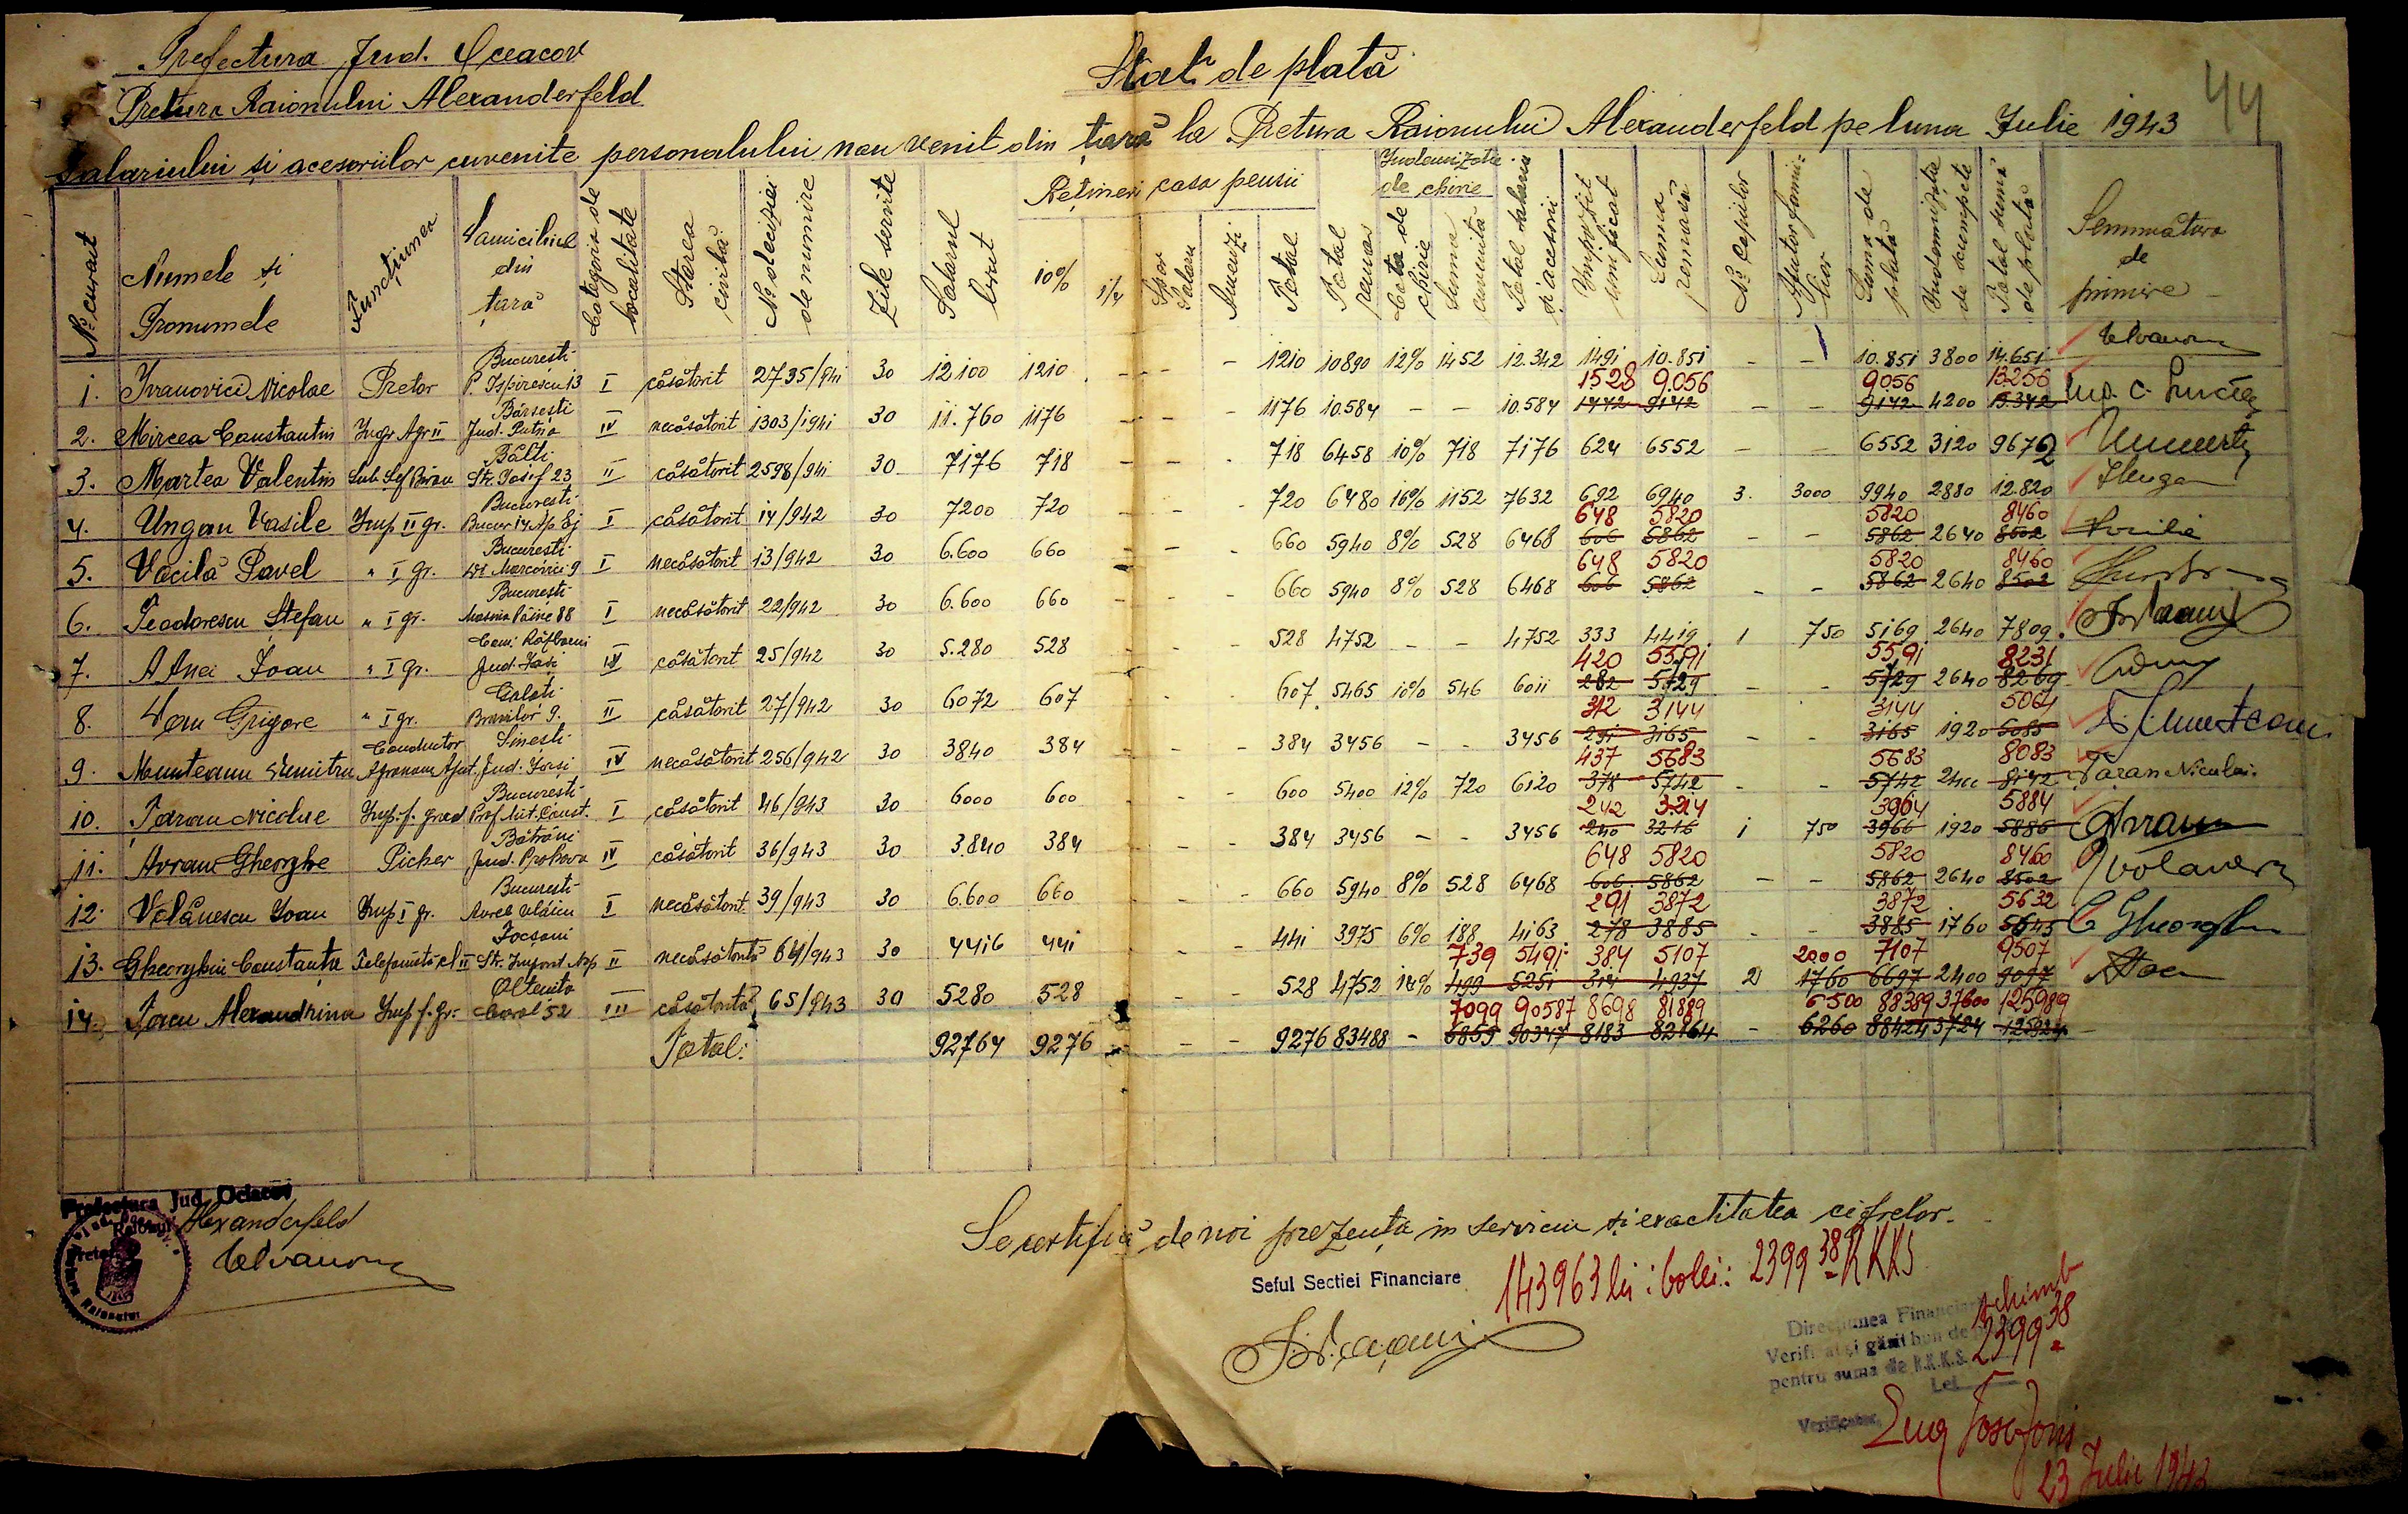 44
Prefectura Jud. Oceacov
Pretura Raionului Alexanderfeld
Stat de plată
Salariului și acesoriilor cuvenite personalului nou venit din țară la Pretura Raionului Alexanderfeld pe luna Iulie 1943
No curent | Numele și Pronumele | Funcțiunea | Domiciliul din țară | Categoria de localitate | Starea civilă | No deciziei de numire | Zile servite | Salarul brut | Rețineri casa pensii | 10% | 1/4 | Spor Salaru | Total | Total rămas | Indemnizatie de chirie | Cota de chirie | Suma cuvenita | Total salaru și acesorii | Impozit unificat | Suma ramasă | No Copiilor | Ajutor familiar | Suma de plată | Indemnizatie de scumpete | Total sumă de plată | Semnatura de primire
1. Ivanovici Nicolae Pretor București P. Ispirescu 13 I căsătorit 2735/941 30 12100 1210 - - - 1210 10890 12% 1452 12.342 1491 10.851 - - 10.851 3800 14.651
1528 9.056 9056 13256
2. Mircea Constantin Ingr Agr II Bârsești Jud. Putna IV necăsătorit 1303/1941 30 11.760 1176 - - - 1176 10.584 - - 10.584 1442 9142 - - 9142 4200 13.342
3. Martea Valentin Sub Șef Birou Bălti Str. Iosif 23 II căsătorit 2598/941 30 7176 718 - - - 718 6458 10% 718 7176 624 6552 - - 6552 3120 9672
4. Ungan Vasile Imp II gr. București Bucur 14 I căsătorit 14/942 30 7200 720 - - - 720 6480 16% 1152 7632 692 6940 3. 3000 9940 2880 12.820
648 5820 5820 8460
5. Vacilă Pavel " I gr. București I necăsătorit 13/942 30 6.600 660 - - - 660 5940 8% 528 6468 606 5862 - - 5862 2640 8502
648 5820 5820 8460
6. Teodorescu Ștefan " I gr. București 88 I necăsătorit 22/942 30 6.600 660 - - - 660 5940 8% 528 6468 606 5862 - - 5862 2640 8502
7. A Anei Ioan " I gr. Com. Războeni Jud. Iasi IV căsătorit 25/942 30 5.280 528 - - - 528 4752 - - 4752 333 4419 1 750 5169 2640 7809
420 5591 5591 8231
8. Grigore " I gr. Galați Brailor 9. II căsătorit 27/942 30 6072 607 - - 607 5465 10% 546 6011 282 5729 - - 5729 2640 8269
312 3144 3144 5064
9. Munteanu Dumitru Conductor Agronom Ajut. Sinesti Jud. Iasi IV necăsătorit 256/942 30 3840 384 - - - 384 3456 - - 3456 291 3165 - - 3165 1920 5085
437 5683 5683 8083
10. Țaran Nicolae Imp. f. grad București Prof. I căsătorit 46/943 30 6000 600 - - - 600 5400 12% 720 6120 378 5742 - - 5742 2400 8142 Țaran Niculai
242 3214 3964 5884
11. Avram Gheorghe Picher Bătrâni Jud. Prahova IV căsătorit 36/943 30 3.840 384 - - - 384 3456 - - 3456 240 3216 1 750 3966 1920 5886 Avram
648 5820 5820 8460
12. Volănescu Ioan Imp I gr. București Aurel Vlaicu I necăsătorit 39/943 30 6.600 660 - - 660 5940 8% 528 6468 606 5862 - - 5862 2640 8502
291 3872 3872 5632
13. Gheorghiu Constanța Telefonistă cl II Focșani II necăsătorită 64/943 30 4416 441 - - 441 3975 6% 188 4163 278 3885 - - 3885 1760 5645 C Gheorghiu
739 5491 384 5107 2000 7107 9507
14. Alexandrina Imp f. gr. Oltenita Carol 52 III căsătorita 65/943 30 5280 528 - - 528 4752 14% 499 5251 314 4937 2 1760 6697 2400 9097
7099 90587 8698 81889 6500 88389 37600 125989
Total: 92764 9276 - - - 9276 83488 - 6859 90347 8183 82164 - 6260 88424
Prefectura Jud. Oceacov
Raionul Alexanderfeld
Pretor
Se certifică de noi prezența in serviciu și exactitatea cifrelor.
Seful Sectiei Financiare
143963 lei : 60 lei : 2399 38 RKKS
Direcțiunea Financiară
Verificat și găsit bun de
pentru suma de R.K.K.S. 2399 38
Lei
Verificator,
23 Iulie 1943